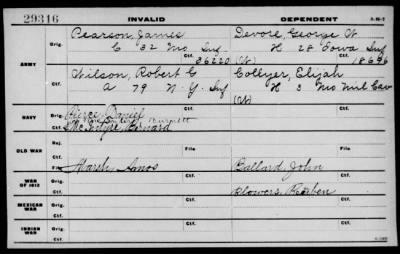 29316 INVALID DEPENDENT
Orig. Pearson, James Devore, George W.
C 32 Mo Inf H 28 Iowa Inf
ARMY Ctf. 36220 (W) Ctf. 18696
Orig. Wilson, Robert G Collyer, Elijah
A 79 N.Y. Inf H 3 Mo Mil Cav
Ctf. (W) Ctf.
NAVY Orig. Pierce, Daniel
Ctf. McIntyre, Bernard
Rej.
OLD WAR Ctf. File File
File Marsh, Amos Ballard, John
WAR OF 1812 Ctf.
Orig. Blowers, Reuben
MEXICAN WAR Ctf.
Orig.
INDIAN WAR Ctf.